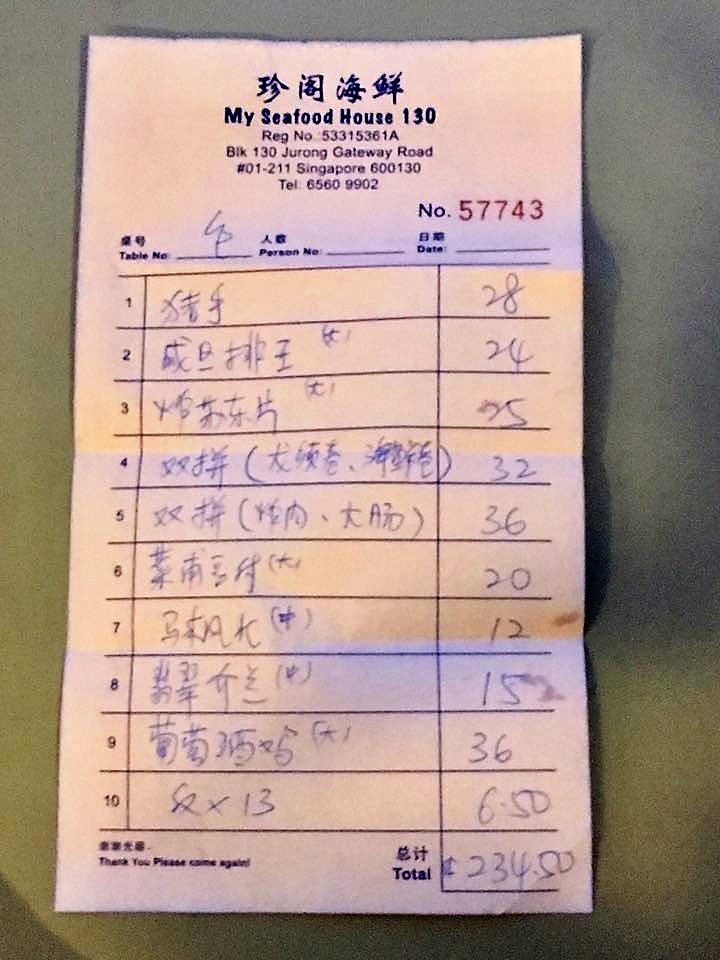 珍阁海鲜
My Seafood House 130
Reg No.:53315361A
Blk 130 Jurong Gateway Road
#01-211 Singapore 600130
Tel: 6560 9902
No. 57743
桌号 人数 日期
Table No: Person No: Date:
1 猪手 28
2 咸旦排王 (大) 24
3 炸苏东片 (大) 25
4 双拼 (龙须卷、海鲜卷) 32
5 双拼 (烧肉、大肠) 36
6 菜甫豆付 (大) 20
7 马来风光 (中) 12
8 翡翠介兰 (中) 15
9 葡萄酒鸡 (大) 36
10 × 13 6.50
谢谢光顾.
Thank You Please come again!
总计
Total 234.50